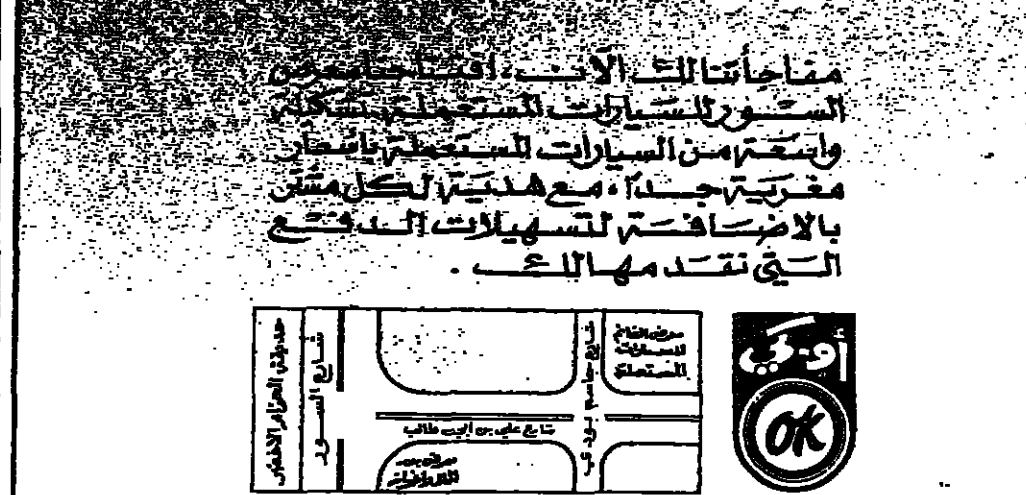 مفاجأتنا لك الآن، افتتاحنا معرض
السور للسيارات المستعملة، تشكيلة
واسعة من السيارات المستعملة بأسعار
مغرية جداً، مع هدية لكل مشتر
بالاضافة لتسهيلات الدفع
التي نقدمها لك.
حديقة الحزام الاخضر
شارع السور
شارع جاسم بودي
معرض الغانم
للسيارات
المستعملة
شارع علي بن أبي طالب
معرض
أوكي
OK